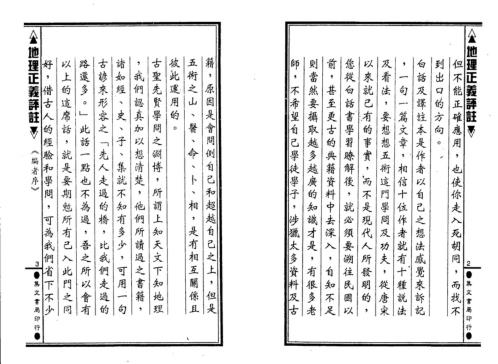 地理正義譯註
2
●集文書局印行●
但不能正確應用，也使你走入死胡同，而找不
到出口的方向。
白話及譯註本是作者以自己之想法感覺來訴記
，一句一篇文章，相信十位作者就有十種說法
及看法，要想想五術這門學問及功夫，從唐宋
以來就已有的事實，而不是現代人所發明的，
您從白話書學習瞭解後，就必須要溯往民國以
前，甚至更古的典籍資料中去深入，自知不足
則當然要攝取越多越廣的知識才是，有很多老
師，不希望自己學徒學子，涉獵太多資料及古
籍，原因是會問倒自己和超越自己之上，但是
五術之山、醫、命、卜、相，是有相互關係且
彼此運用的。
古聖先賢學問之淵博，所謂上知天文下知地理
，我們認真加以想清楚，他們所讀過之書籍，
諸如經、史、子、集就不知有多少，可用一句
古諺來形容之「先人走過的橋，比我們走過的
路還多。」此話一點也不為過，吾之所以會有
以上的這席話，就是要期勉所有已入此門之同
好，借古人的經驗和學問，可為我們省下不少
地理正義譯註
《編者序》
3
●集文書局印行●